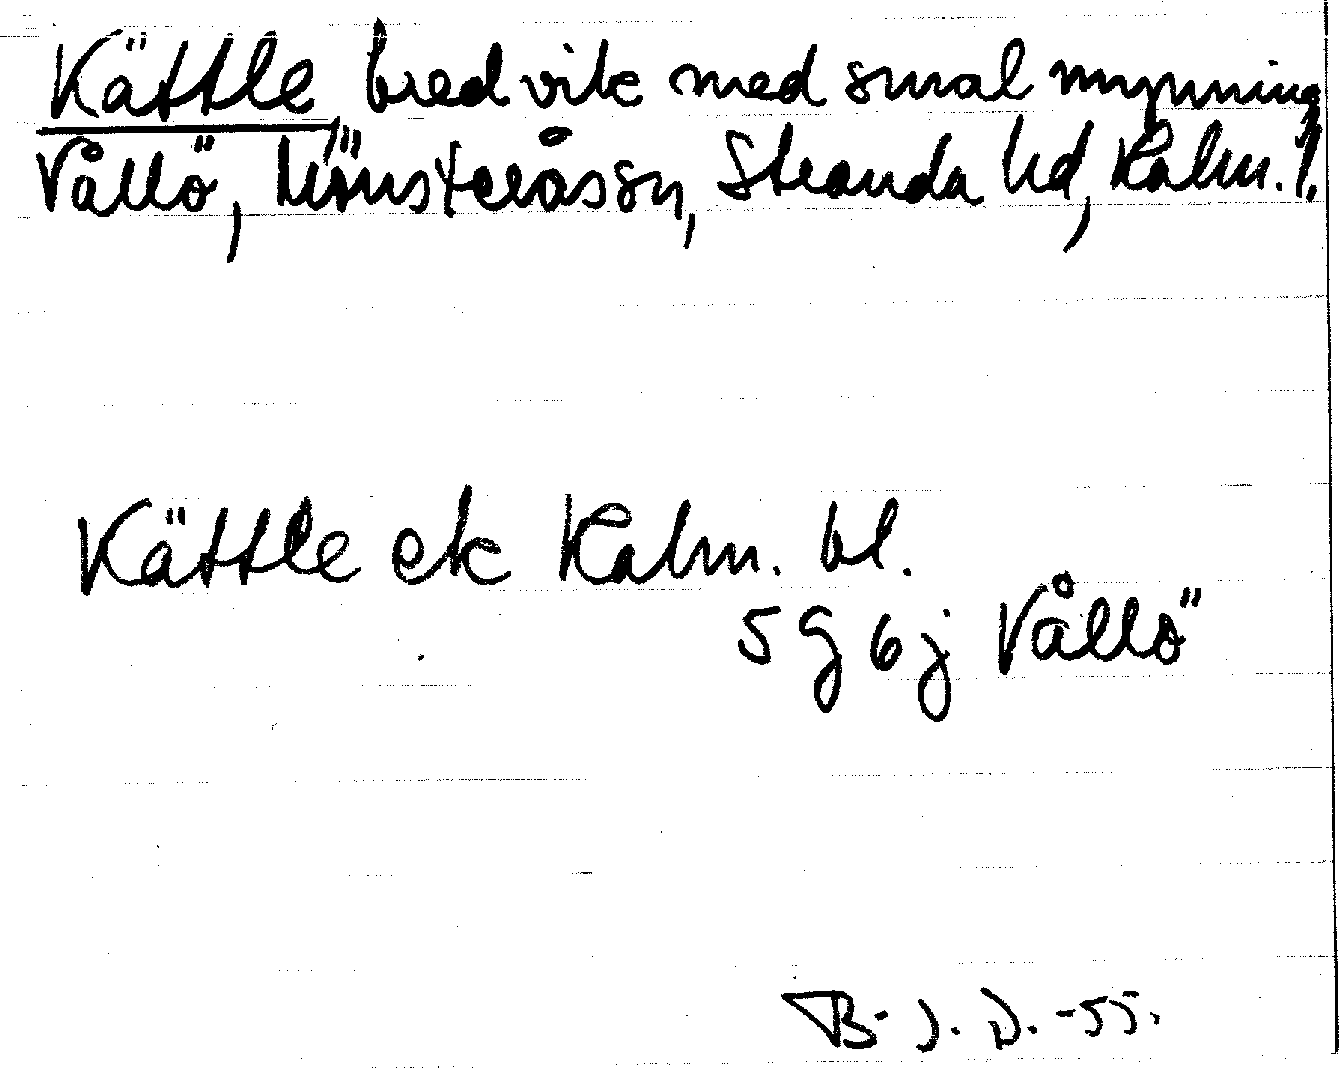 Kättle bred vik med smal mynning
Vållö, Mönsterås sn, Stranda hd, Kalm. l.
Kättle ek Kalm. bl.
5 G 6 j Vållö
B. J. D. -55.